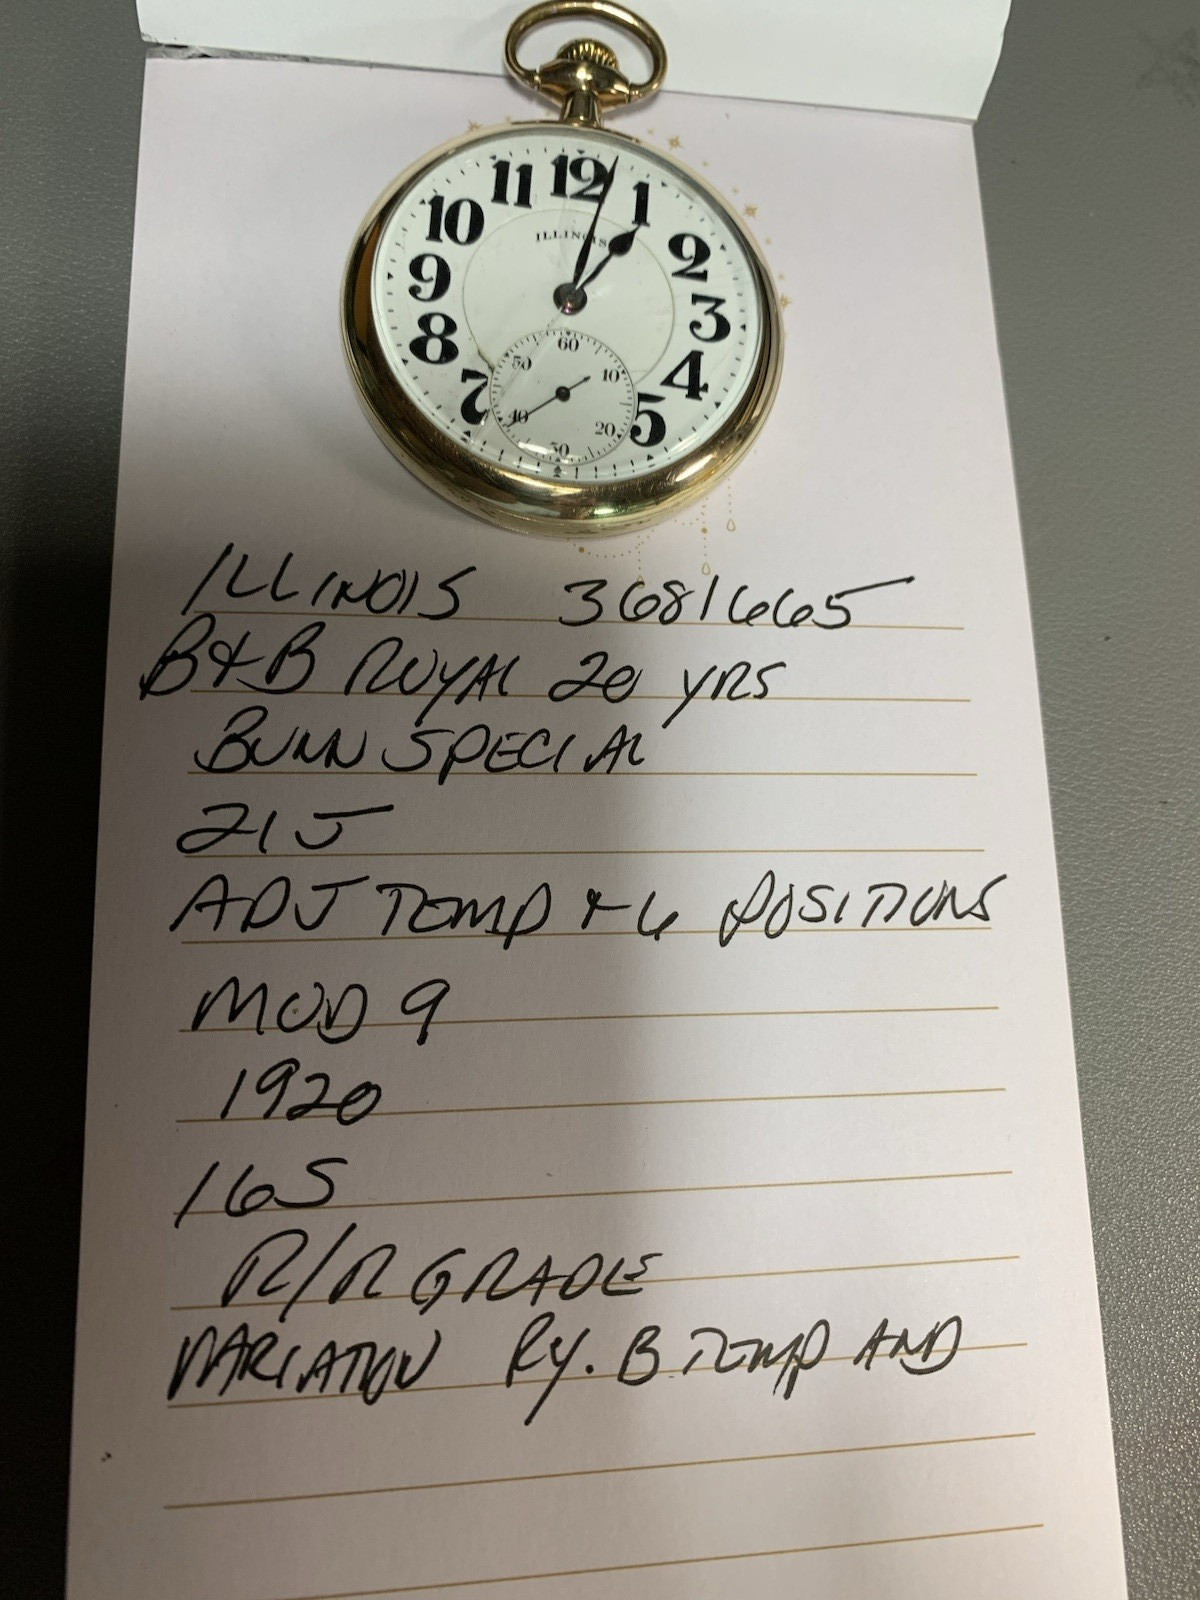 11 12 1
10 2
ILLINOIS
9 3
8 4
7 5
60
50 10
40 20
30
ILLINOIS 3681665
B&B ROYAL 20 YRS
BUNN SPECIAL
21J
ADJ TEMP + 6 POSITIONS
MOD 9
1920
16S
R/R GRADE
VARIATION RY. B TEMP AND